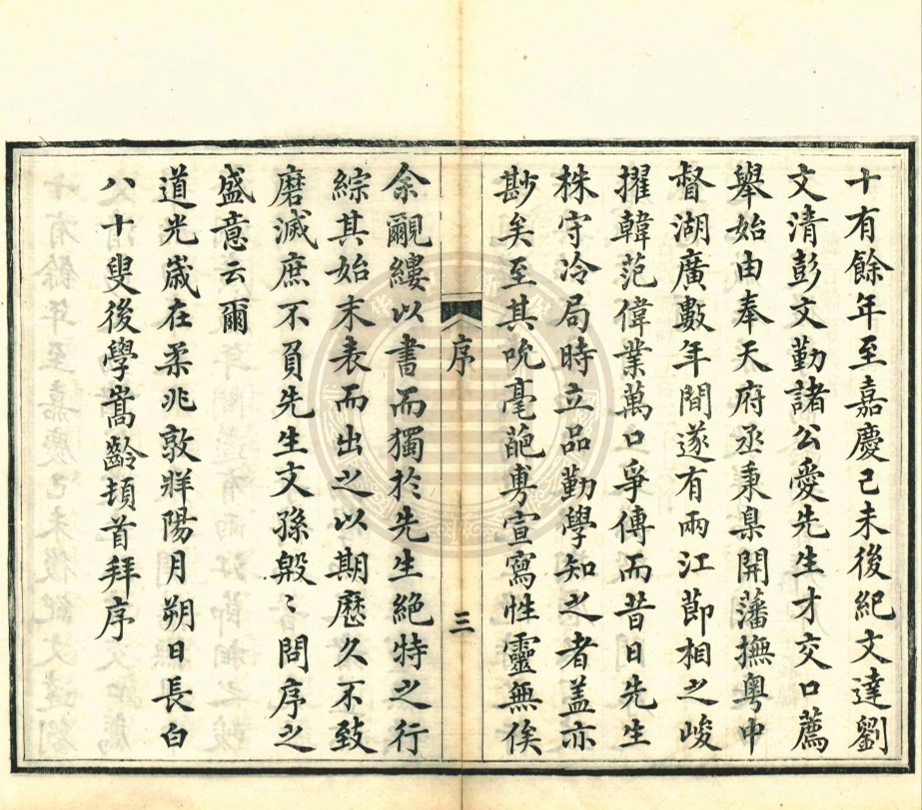 十有餘年至嘉慶己未後紀文達劉
文清彭文勤諸公愛先生才交口薦
舉始由奉天府丞秉臬開藩撫粵中
督湖廣數年間遂有兩江節相之峻
擢韓范偉業萬口爭傳而昔日先生
株守冷局時立品勤學知之者盖亦
尠矣至其吮毫葩尃宣寫性靈無俟
序
三
余覼縷以書而獨於先生絶特之行
綜其始末表而出之以期歷久不致
磨滅庶不負先生文孫殷〻問序之
盛意云爾
道光嵗在柔兆敦牂陽月朔日長白
八十叟後學嵩齡頓首拜序